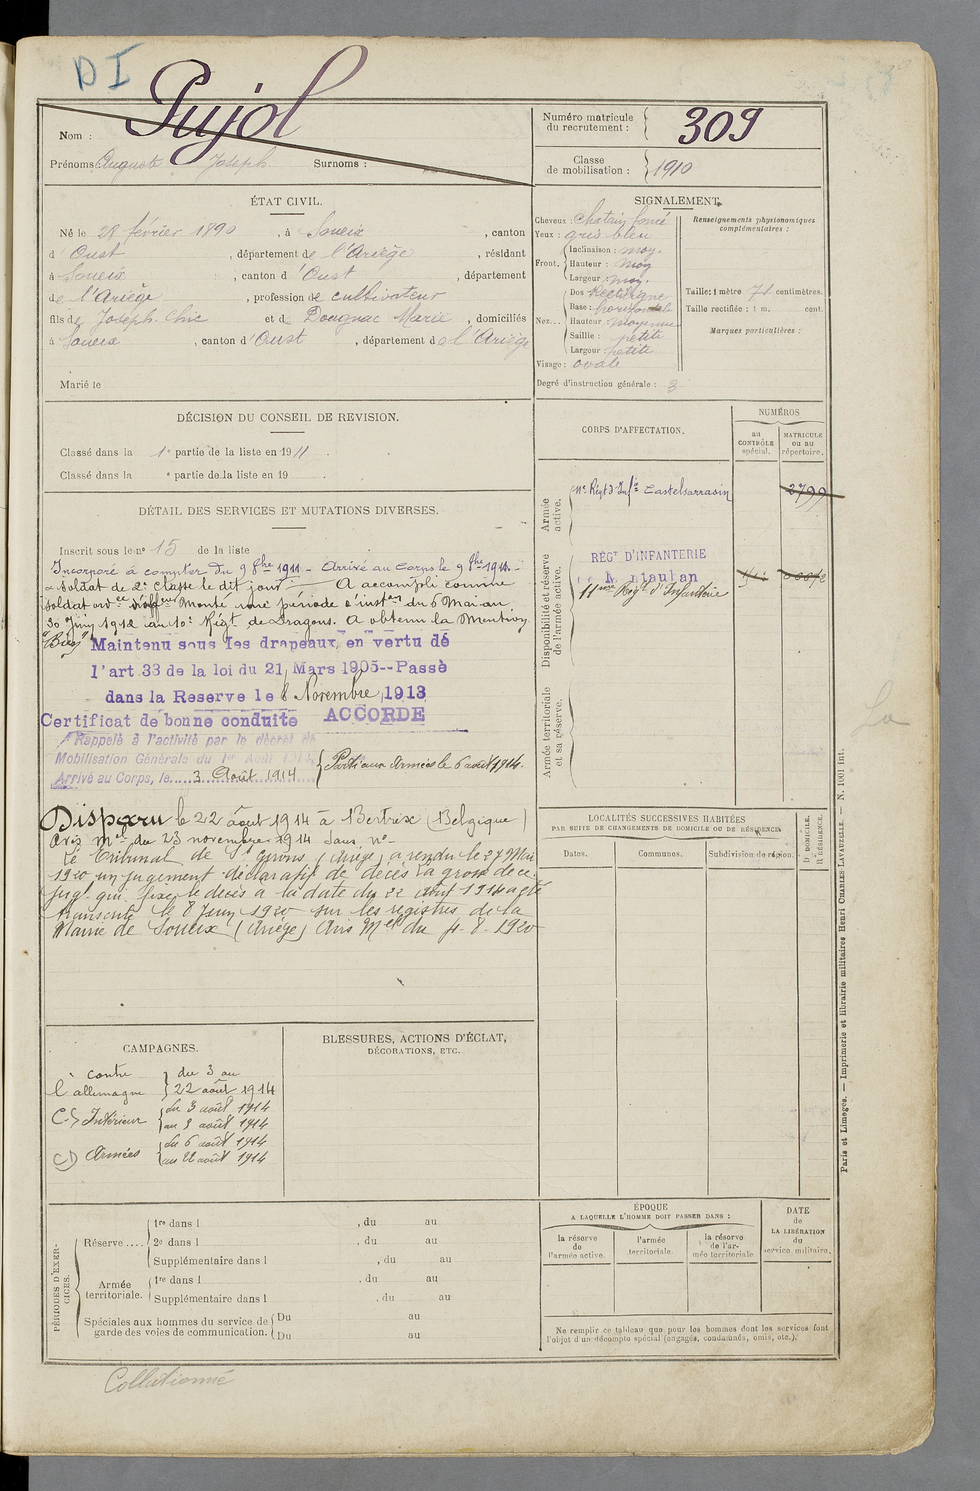 DI
Pujol
Nom :
Prénoms Auguste Joseph Surnoms :
Numéro matricule
du recrutement : 309
Classe
de mobilisation : 1910
ÉTAT CIVIL.
Né le 28 février 1890, à Soueix, canton
d'Oust, département de l'Ariège, résidant
à Soueix, canton d'Oust, département
de l'Ariège, profession de cultivateur
fils de Joseph Chic et de Dougnac Marie, domiciliés
à Soueix, canton d'Oust, département de l'Ariège
Marié le
SIGNALEMENT.
Cheveux : chatain foncé
Yeux : gris bleu
Front. Inclinaison : moy.
Hauteur : moy
Largeur : moy.
Nez... Dos Rectiligne
Base : horizontale
Hauteur : moyenne
Saillie : petite
Largeur petite
Visage : ovale
Degré d'instruction générale : 3
Renseignements physionomiques
complémentaires :
Taille: 1 mètre 71 centimètres.
Taille rectifiée : 1 m. cent.
Marques particulières :
DÉCISION DU CONSEIL DE REVISION.
Classé dans la 1e partie de la liste en 1911.
Classé dans la e partie de la liste en 19 .
DÉTAIL DES SERVICES ET MUTATIONS DIVERSES.
Inscrit sous le n° 15 de la liste
Incorporé à compter du 9 8bre 1911 - Arrivé au Corps le 9 8bre 1911 -
Soldat de 2e Classe le dit jour — A accompli comme
Soldat monté une période d'inston du 6 Mai au
30 Juin 1912 au 10e Régt de Dragons. A obtenu la Mention
"Bien"
Maintenu sous les drapeaux en vertu de
l'art.33 de la loi du 21 Mars 1905--Passé
dans la Reserve le 8 Novembre 1913
Certificat de bonne conduite ACCORDÉ
Rappelé à l'activité par le décret de
Mobilisation Générale du 1er Août 1914
Arrivé au Corps, le 3 Août 1914 Parti aux Armées le 6 août 1914.
Disparu le 22 août 1914 à Bertrix (Belgique)
Avis Mel du 23 novembre 1914 Sans n°
Le Tribunal de St Girons (Ariège) a rendu le 27 Mai
1920 un jugement déclaratif de décès la grosse de ce
jugt qui fixe le décès à la date du 22 août 1914 a été
transcrite le 8 Juin 1920 sur les registres de la
Mairie de Soueix (Ariège) Avis Mel du 4-8-1920
CORPS D'AFFECTATION.
NUMÉROS
au
CONTRÔLE
spécial.
MATRICULE
ou au
répertoire.
Armée
active.
Régt d'Infie Castelsarrasin 2799
Disponibilité et réserve
de l'armée active.
RÉGt D'INFANTERIE
Montauban
11ème Régt d'Infanterie
Armée territoriale
et sa réserve.
LOCALITÉS SUCCESSIVES HABITÉES
PAR SUITE DE CHANGEMENTS DE DOMICILE OU DE RÉSIDENCE
Dates. Communes. Subdivision de région.
D. DOMICILE.
R. RÉSIDENCE.
CAMPAGNES.
contre
l'allemagne du 3 au
22 août 1914
C-S Intérieur du 3 août 1914
au 5 août 1914
CD Armées du 6 août 1914
au 22 août 1914
BLESSURES, ACTIONS D'ÉCLAT,
DÉCORATIONS, ETC.
PÉRIODES D'EXER-
CICES.
Réserve .... 1re dans l , du au
2e dans l , du au
Supplémentaire dans l , du au
Armée
territoriale. 1re dans l , du au
Supplémentaire dans l , du au
Spéciales aux hommes du service de
garde des voies de communication. Du au
Du au
ÉPOQUE
A LAQUELLE L'HOMME DOIT PASSER DANS :
la réserve
de
l'armée active.
l'armée
territoriale.
la réserve
de l'ar-
mée territoriale
DATE
de
LA LIBÉRATION
du
service militaire.
Ne remplir ce tableau que pour les hommes dont les services font
l'objet d'un décompte spécial (engagés, condamnés, omis, etc.).
Paris et Limoges. — Imprimerie et librairie militaires Henri CHARLES-LAVAUZELLE. — N. 1001 Int.
Collationné